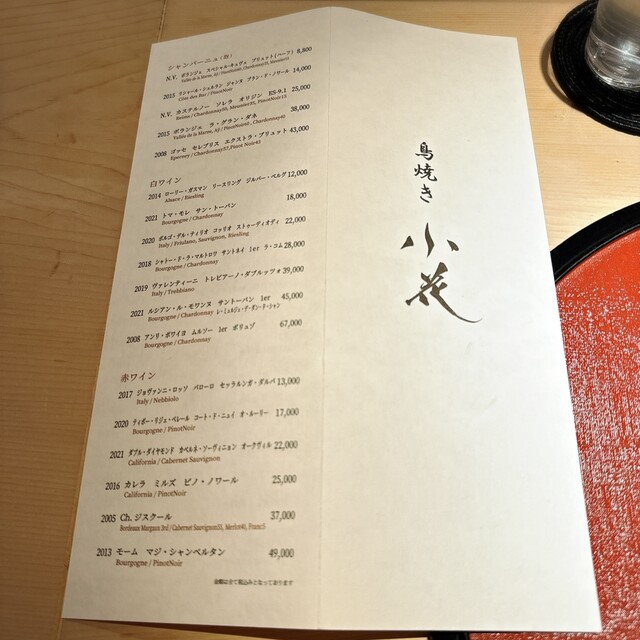 シャンパーニュ(泡)
N.V. ボランジェ スペシャル・キュヴェ ブリュット(ハーフ) 8,800
Vallée de la Marne, AŸ / PinotNoir60, Chardonnay25, Meunier15
2015 リシャール・シュルラン ジャンヌ ブラン・ド・ノワール 14,000
Côtes des Bar / PinotNoir
N.V. カステルノー ソレラ オリジン ES-9.1 25,000
Reims / Chardonnay50, Meunier35, PinotNoir15
2015 ボランジェ ラ・グラン・ダネ 38,000
Vallée de la Marne, AŸ / PinotNoir60, Chardonnay40
2008 ゴッセ セレブリス エクストラ・ブリュット 43,000
Epernay / Chardonnay57, Pinot Noir43
白ワイン
2014 ローリー・ガスマン リースリング ジルバー・ベルグ 12,000
Alsace / Riesling
2021 トマ・モレ サン・トーバン 18,000
Bourgogne / Chardonnay
2020 ボルゴ・デル・ティリオ コッリオ ストゥーディオディ 22,000
Italy / Friulano, Sauvignon, Riesling
2018 シャトー・ド・ラ・マルトロワ サントネイ 1er ラ・コム 28,000
Bourgogne / Chardonnay
2019 ヴァレンティーニ トレビアーノ・ダブルッツォ 39,000
Italy / Trebbiano
2021 ルシアン・ル・モワンヌ サントーバン 1er 45,000
Bourgogne / Chardonnay レ・ミュルジェ・デ・ダン・ド・シャン
2008 アンリ・ボワイヨ ムルソー 1er ポリュゾ 67,000
Bourgogne / Chardonnay
赤ワイン
2017 ジョヴァンニ・ロッソ バローロ セッラルンガ・ダルバ 13,000
Italy / Nebbiolo
2020 ティボー・リジェ・ベレール コート・ド・ニュイ オ・ルーリー 17,000
Bourgogne / PinotNoir
2021 ダブル・ダイヤモンド カベルネ・ソーヴィニョン オークヴィル 22,000
California / Cabernet Sauvignon
2016 カレラ ミルズ ピノ・ノワール 25,000
California / PinotNoir
2005 Ch. ジスクール 37,000
Bordeaux Margaux 3rd / Cabernet Sauvignon55, Merlot40, Franc5
2013 モーム マジ・シャンベルタン 49,000
Bourgogne / PinotNoir
金額は全て税込みとなっております
鳥焼き
小花